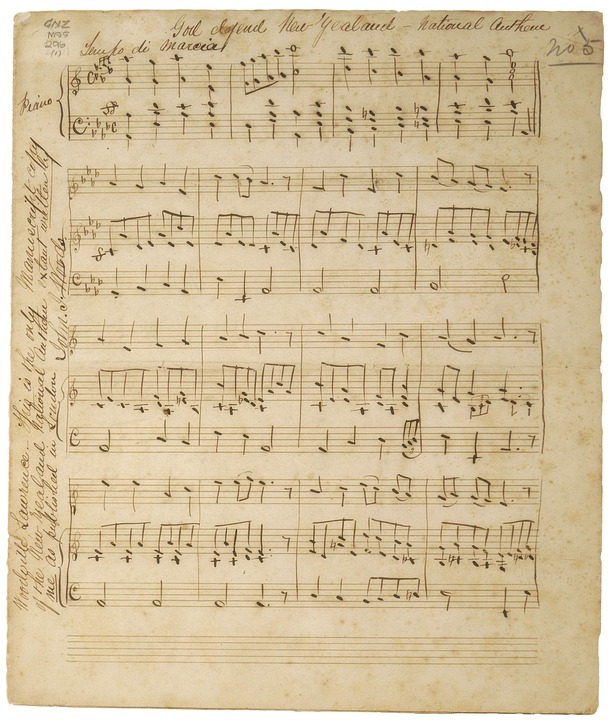 GNZ
MSS
206
(1)
God defend New Zealand – National Anthem
No 5
Tempo di marcia
Piano
Woodville Lawrence. This is the only manuscript copy
of the New Zealand National Anthem extant written by
me as published in London John J. Woods